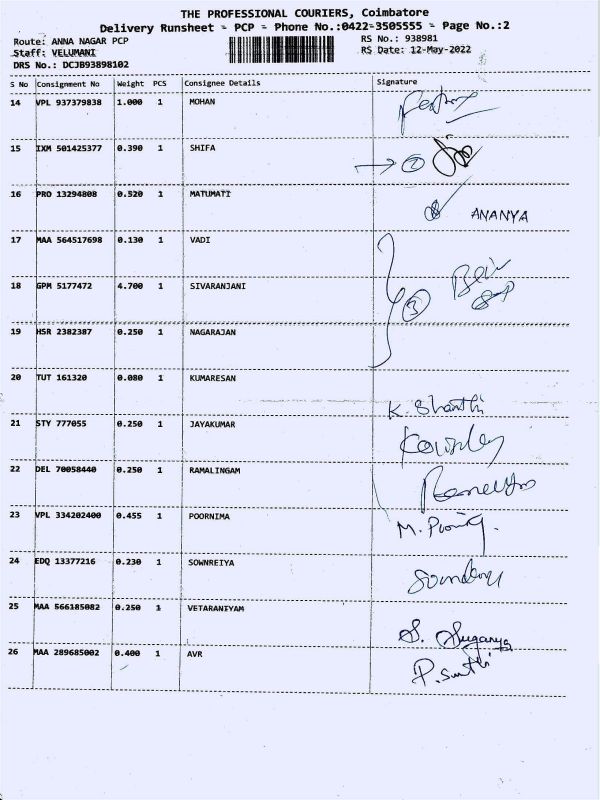 THE PROFESSIONAL COURIERS, Coimbatore
Delivery Runsheet - PCP - Phone No.:0422-3505555 - Page No.:2
Route: ANNA NAGAR PCP RS No.: 938981
Staff: VELUMANI RS Date: 12-May-2022
DRS No.: DCJB93898102
S No Consignment No Weight PCS Consignee Details Signature
14 VPL 937379838 1.000 1 MOHAN
15 IXM 501425377 0.390 1 SHIFA 2
16 PRO 13294808 0.520 1 MATUMATI ANANYA
17 MAA 564517698 0.130 1 VADI
18 GPM 5177472 4.700 1 SIVARANJANI 3
19 HSR 2382387 0.250 1 NAGARAJAN
20 TUT 161320 0.080 1 KUMARESAN K. Shanthi
21 STY 777055 0.250 1 JAYAKUMAR
22 DEL 70058440 0.250 1 RAMALINGAM
23 VPL 334202400 0.455 1 POORNIMA M.
24 EDQ 13377216 0.230 1 SOWNREIYA
25 MAA 566185082 0.250 1 VETARANIYAM S. Suganya
26 MAA 289685002 0.400 1 AVR